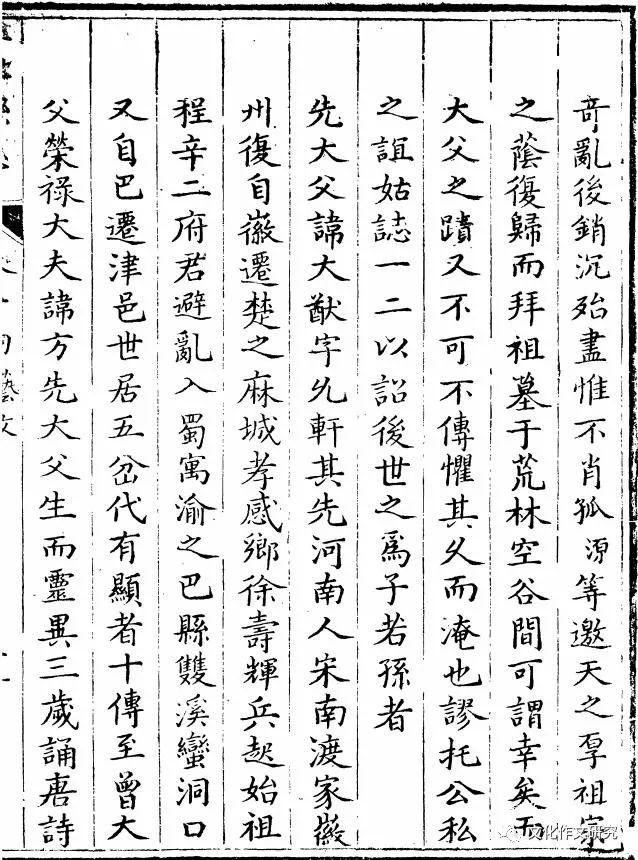 奇亂後銷沉殆盡惟不肖孤源等邀天之享祖宗
之蔭復歸而拜祖墓于荒林空谷間可謂幸矣而
大父之蹟又不可不傳懼其久而淹也謬托公私
之誼姑誌一二以詔後世之爲子若孫者
先大父諱大猷字允軒其先河南人宋南渡家徽
州復自徽遷楚之麻城孝感鄉徐壽輝兵起始祖
程辛二府君避亂入蜀寓渝之巴縣雙溪蠻洞口
又自巴遷津邑世居五岔代有顯者十傳至曾大
父榮禄大夫諱方先大父生而靈異三歲誦唐詩
文化作文研究